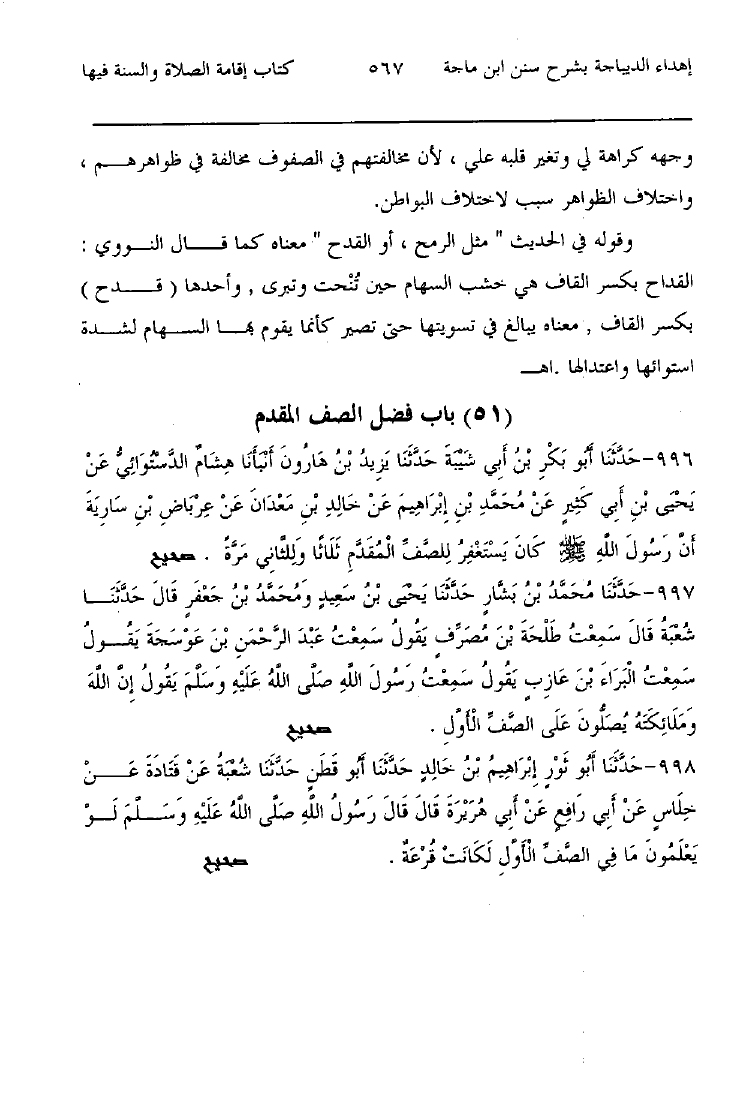 إهداء الديباجة بشرح سنن ابن ماجة ٥٦٧ كتاب إقامة الصلاة والسنة فيها
وجهه كراهة لي وتغير قلبه علي ، لأن مخالفتهم في الصفوف مخالفة في ظواهرهم ،
واختلاف الظواهر سبب لاختلاف البواطن.
وقوله في الحديث " مثل الرمح ، أو القدح " معناه كما قال النووي :
القداح بكسر القاف هي خشب السهام حين تُنْحت وتبرى , وأحدها ( قدح )
بكسر القاف , معناه يبالغ في تسويتها حتى تصير كأنما يقوم بها السهام لشدة
استوائها واعتدالها .اهـ
(٥١) باب فضل الصف المقدم
٩٩٦-حَدَّثَنَا أَبُو بَكْرِ بْنُ أَبِي شَيْبَةَ حَدَّثَنَا يَزِيدُ بْنُ هَارُونَ أَنْبَأَنَا هِشَامٌ الدَّسْتُوَائِيُّ عَنْ
يَحْيَى بْنِ أَبِي كَثِيرٍ عَنْ مُحَمَّدِ بْنِ إِبْرَاهِيمَ عَنْ خَالِدِ بْنِ مَعْدَانَ عَنْ عِرْبَاضِ بْنِ سَارِيَةَ
أَنَّ رَسُولَ اللَّهِ ﷺ كَانَ يَسْتَغْفِرُ لِلصَّفِّ الْمُقَدَّمِ ثَلَاثًا وَلِلثَّانِي مَرَّةً . صحيح
٩٩٧-حَدَّثَنَا مُحَمَّدُ بْنُ بَشَّارٍ حَدَّثَنَا يَحْيَى بْنُ سَعِيدٍ وَمُحَمَّدُ بْنُ جَعْفَرٍ قَالَ حَدَّثَنَا
شُعْبَةُ قَالَ سَمِعْتُ طَلْحَةَ بْنَ مُصَرِّفٍ يَقُولُ سَمِعْتُ عَبْدَ الرَّحْمَنِ بْنَ عَوْسَجَةَ يَقُولُ
سَمِعْتُ الْبَرَاءَ بْنَ عَازِبٍ يَقُولُ سَمِعْتُ رَسُولَ اللَّهِ صَلَّى اللَّهُ عَلَيْهِ وَسَلَّمَ يَقُولُ إِنَّ اللَّهَ
وَمَلَائِكَتَهُ يُصَلُّونَ عَلَى الصَّفِّ الْأَوَّلِ . صحيح
٩٩٨-حَدَّثَنَا أَبُو ثَوْرٍ إِبْرَاهِيمُ بْنُ خَالِدٍ حَدَّثَنَا أَبُو قَطَنٍ حَدَّثَنَا شُعْبَةُ عَنْ قَتَادَةَ عَنْ
خِلَاسٍ عَنْ أَبِي رَافِعٍ عَنْ أَبِي هُرَيْرَةَ قَالَ قَالَ رَسُولُ اللَّهِ صَلَّى اللَّهُ عَلَيْهِ وَسَلَّمَ لَوْ
يَعْلَمُونَ مَا فِي الصَّفِّ الْأَوَّلِ لَكَانَتْ قُرْعَةٌ . صحيح